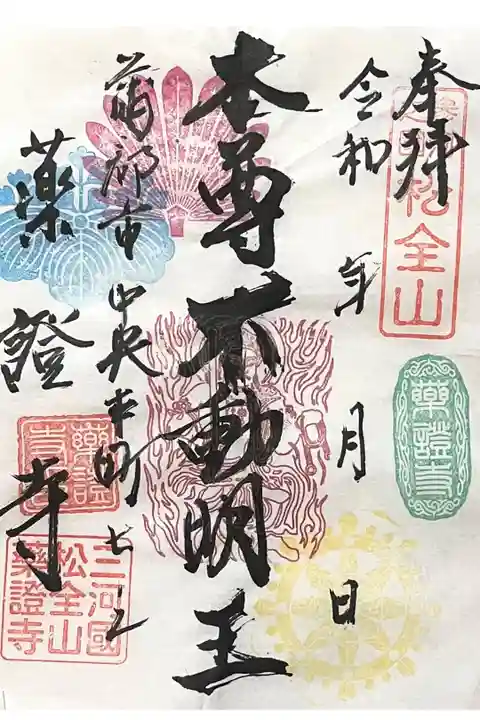 奉拝
令和 年 月 日
本尊不動明王
蒲郡市中央本町七ー二
薬證寺
松全山
藥證寺
藥證寺
三河國
松全山
藥證寺